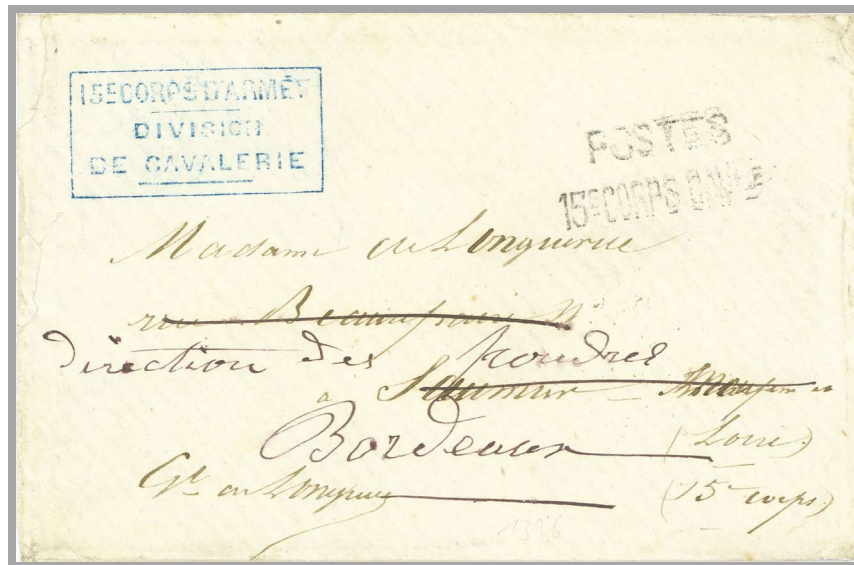 15E CORPS D'ARMÉE
DIVISION
DE CAVALERIE
POSTES
15E CORPS
Madame de Longuerue
rue Beaurepaire No
Direction des Poudres
a Saumur
Bordeaux
(Loire)
Gal de Longuerue
(15e corps)
1326